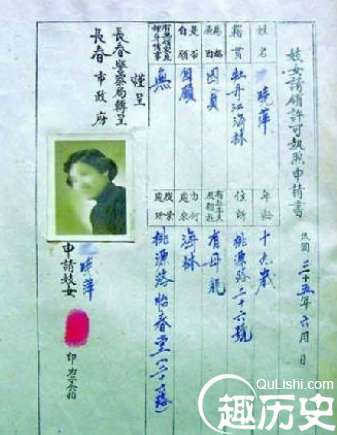 妓女請領許可執照申請書 民國三十五年六月 日
姓名 曉萍 年齡 十六歲
籍貫 牡丹江海林 住所 桃源路二十六號
因貧 有母親
是否自願 自願 由何處來 海林
無 桃源路怡春堂
謹呈
長春警察局轉呈
長春市政府
申請妓女 曉萍 印
QuLishi.com
趣历史